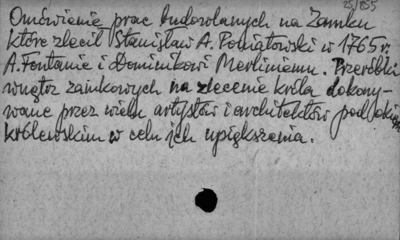 25/255
Omówienie prac budowlanych na Zamku
które zlecił Stanisław A. Poniatowski w 1765 r.
A. Fontanie i Dominikowi Merliniemu. Przeróbki
wnętrz zamkowych na zlecenie króla dokony-
wane przez wielu artystów i architektów pod
królewskim w celu ich upiększenia.